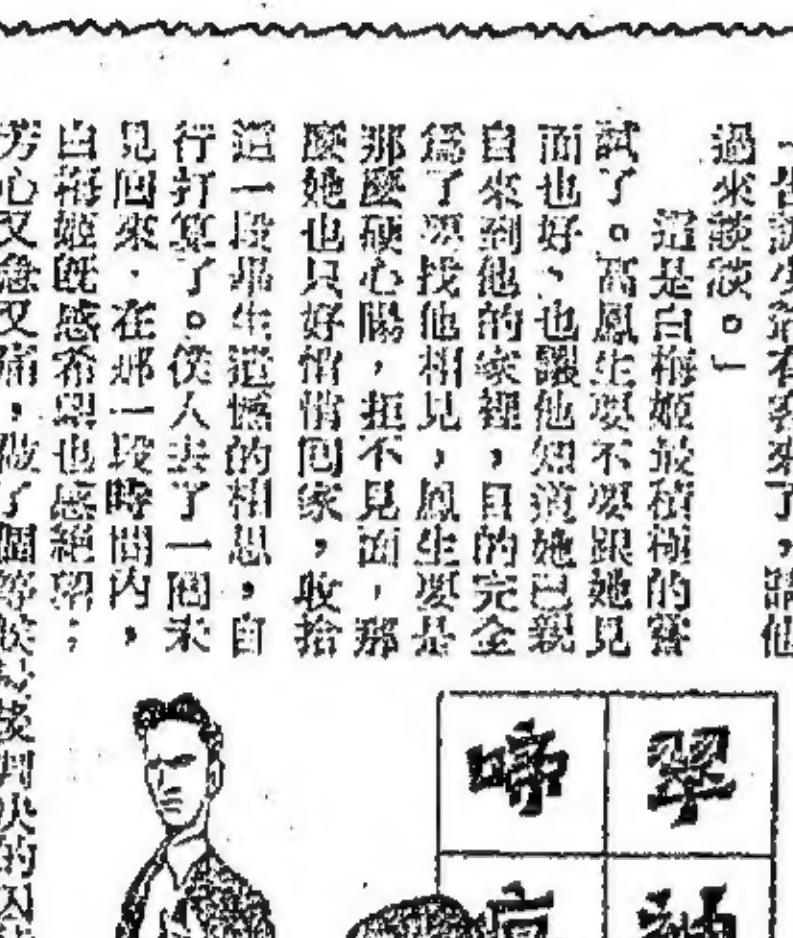 過來談談。」
這是白梅姬最積極的嘗
試了。高鳳生要不要跟她見
面也好、也讓他知道她已親
自來到他的家裡，目的完全
爲了要找他相見，鳳生要是
那麼硬心腸，拒不見面，那
麼她也只好悄悄回家，收拾
這一段畢生遺憾的相思，自
行打算了。侯人去了一囘未
見囘來．在那一段時間內，
白梅姬旣感希望也感絕望；
芳心又急又痛，做了個等候
翠
啼